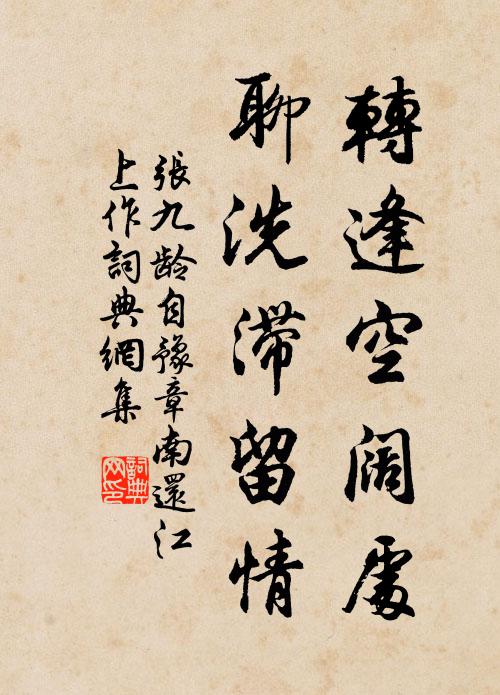 轉逢空闊處
聊洗滯留情
張九龄自豫章南還江
上作詞典網集
詞典
网印